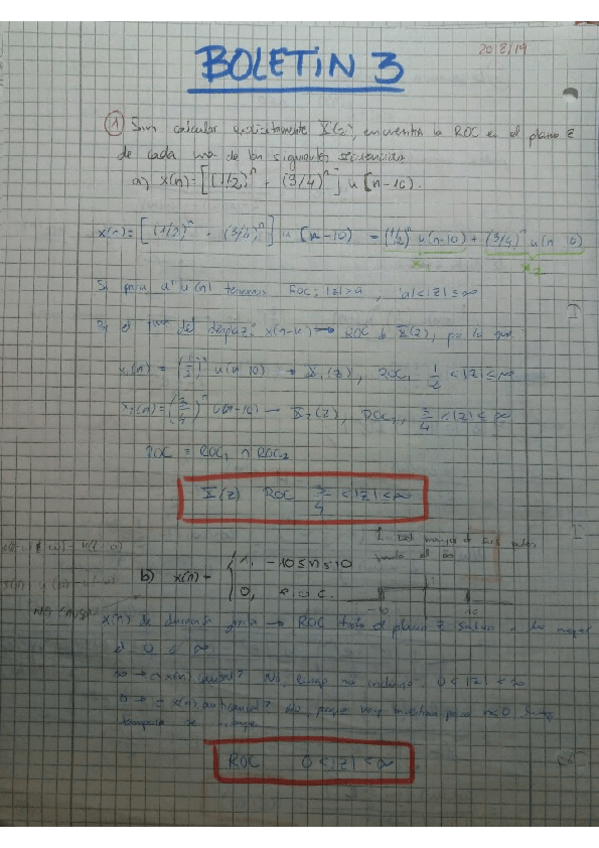 20/2/19
BOLETIN 3
① Sin calcular explícitamente X(z), encuentra la ROC en el plano z
de cada una de las siguientes secuencias
a) x(n) = [(1/2)^n + (3/4)^n] u[n-10].
x(n) = [(1/2)^n + (3/4)^n] u(n-10) = (1/2)^n u(n-10) + (3/4)^n u(n-10)
x1 x2
Si para a^n u(n) tenemos ROC: |z|>a, |a|<|z|≤∞
Si el del despaz: x(n-k) → ROC de X(z), por lo que:
x1(n) = (1/2)^n u(n-10) → X1(z), ROC1 1/2 <|z|≤∞
x2(n) = (3/4)^n u(n-10) → X2(z), ROC2, 3/4 <|z|≤∞
ROC = ROC1 ∩ ROC2
X(z) ROC 3/4 <|z|≤∞
b) x(n) = { 1, -10≤n≤10
0, e.o.c.
-10 10
x(n) de duración finita → ROC todo el plano z salvo a lo mejor
el 0 e ∞
∞ → ¿x(n) causal? No, luego no incluimos 0<|z|<∞
0 → ¿x(n) anticausal? No, porque hay muestras para n>0, luego
tampoco se
ROC 0<|z|<∞